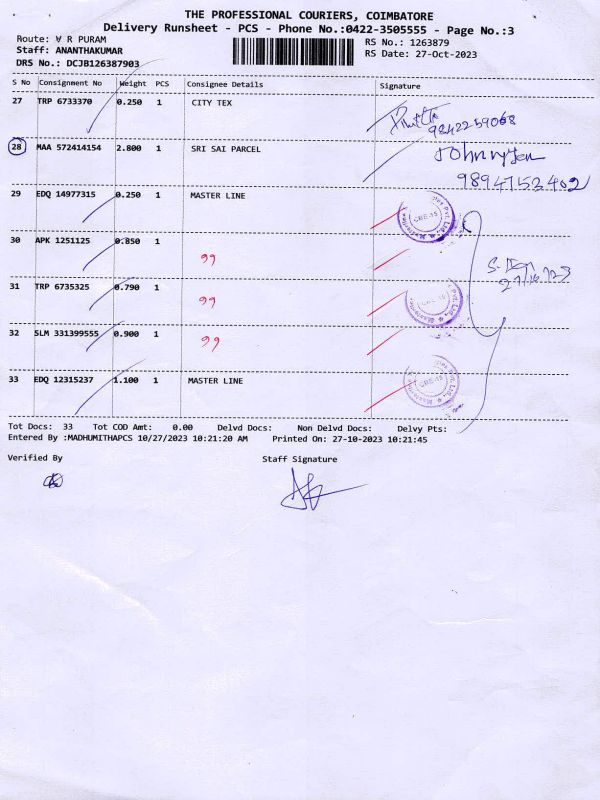 THE PROFESSIONAL COURIERS, COIMBATORE
Delivery Runsheet - PCS - Phone No.:0422-3505555 - Page No.:3
Route: ∀ R PURAM
RS No.: 1263879
Staff: ANANTHAKUMAR
RS Date: 27-Oct-2023
DRS No.: DCJB126387903
S No Consignment No Weight PCS Consignee Details Signature
27 TRP 6733370 0.250 1 CITY TEX
9842259068
28 MAA 572414154 2.800 1 SRI SAI PARCEL
9894752402
29 EDQ 14977315 0.250 1 MASTER LINE
30 APK 1251125 0.850 1 ,,
31 TRP 6735325 0.790 1 ,,
32 SLM 331399555 0.900 1 ,,
33 EDQ 12315237 1.100 1 MASTER LINE
Tot Docs: 33 Tot COD Amt: 0.00 Delvd Docs: Non Delvd Docs: Delvy Pts:
Entered By :MADHUMITHAPCS 10/27/2023 10:21:20 AM Printed On: 27-10-2023 10:21:45
Verified By Staff Signature